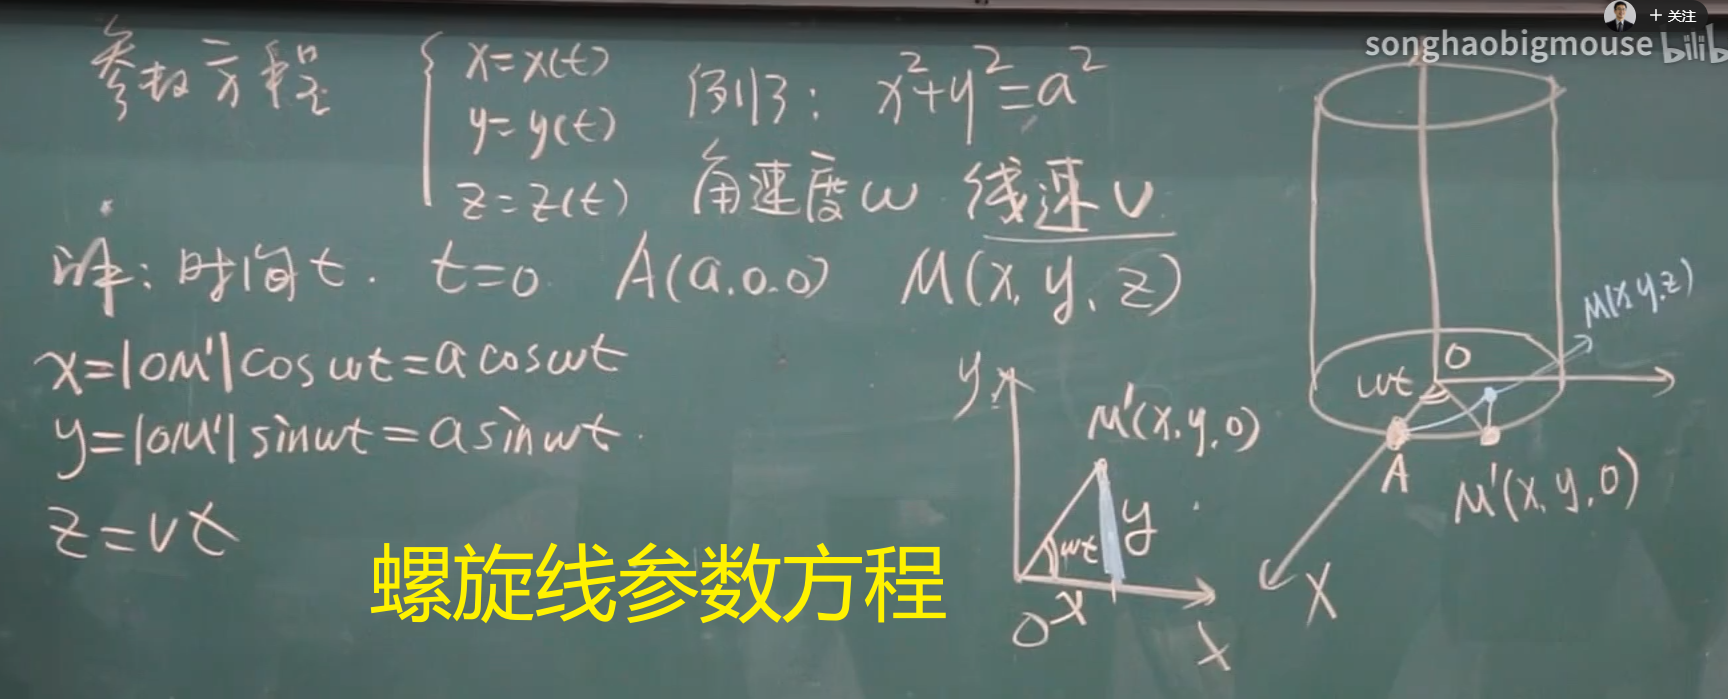 + 关注
songhaobigmouse bilib
参数方程 { x=x(t) 例3: x²+y²=a²
y=y(t)
z=z(t) 角速度ω 线速v
解: 时间t. t=0. A(a.0.0) M(x, y, z)
x=|OM'|cosωt=acosωt
y=|OM'|sinωt=asinωt.
z=vt
螺旋线参数方程
y
M'(x, y, 0)
y
ωt
O x
x
M(x,y,z)
O
ωt
A
M'(x, y, 0)
x